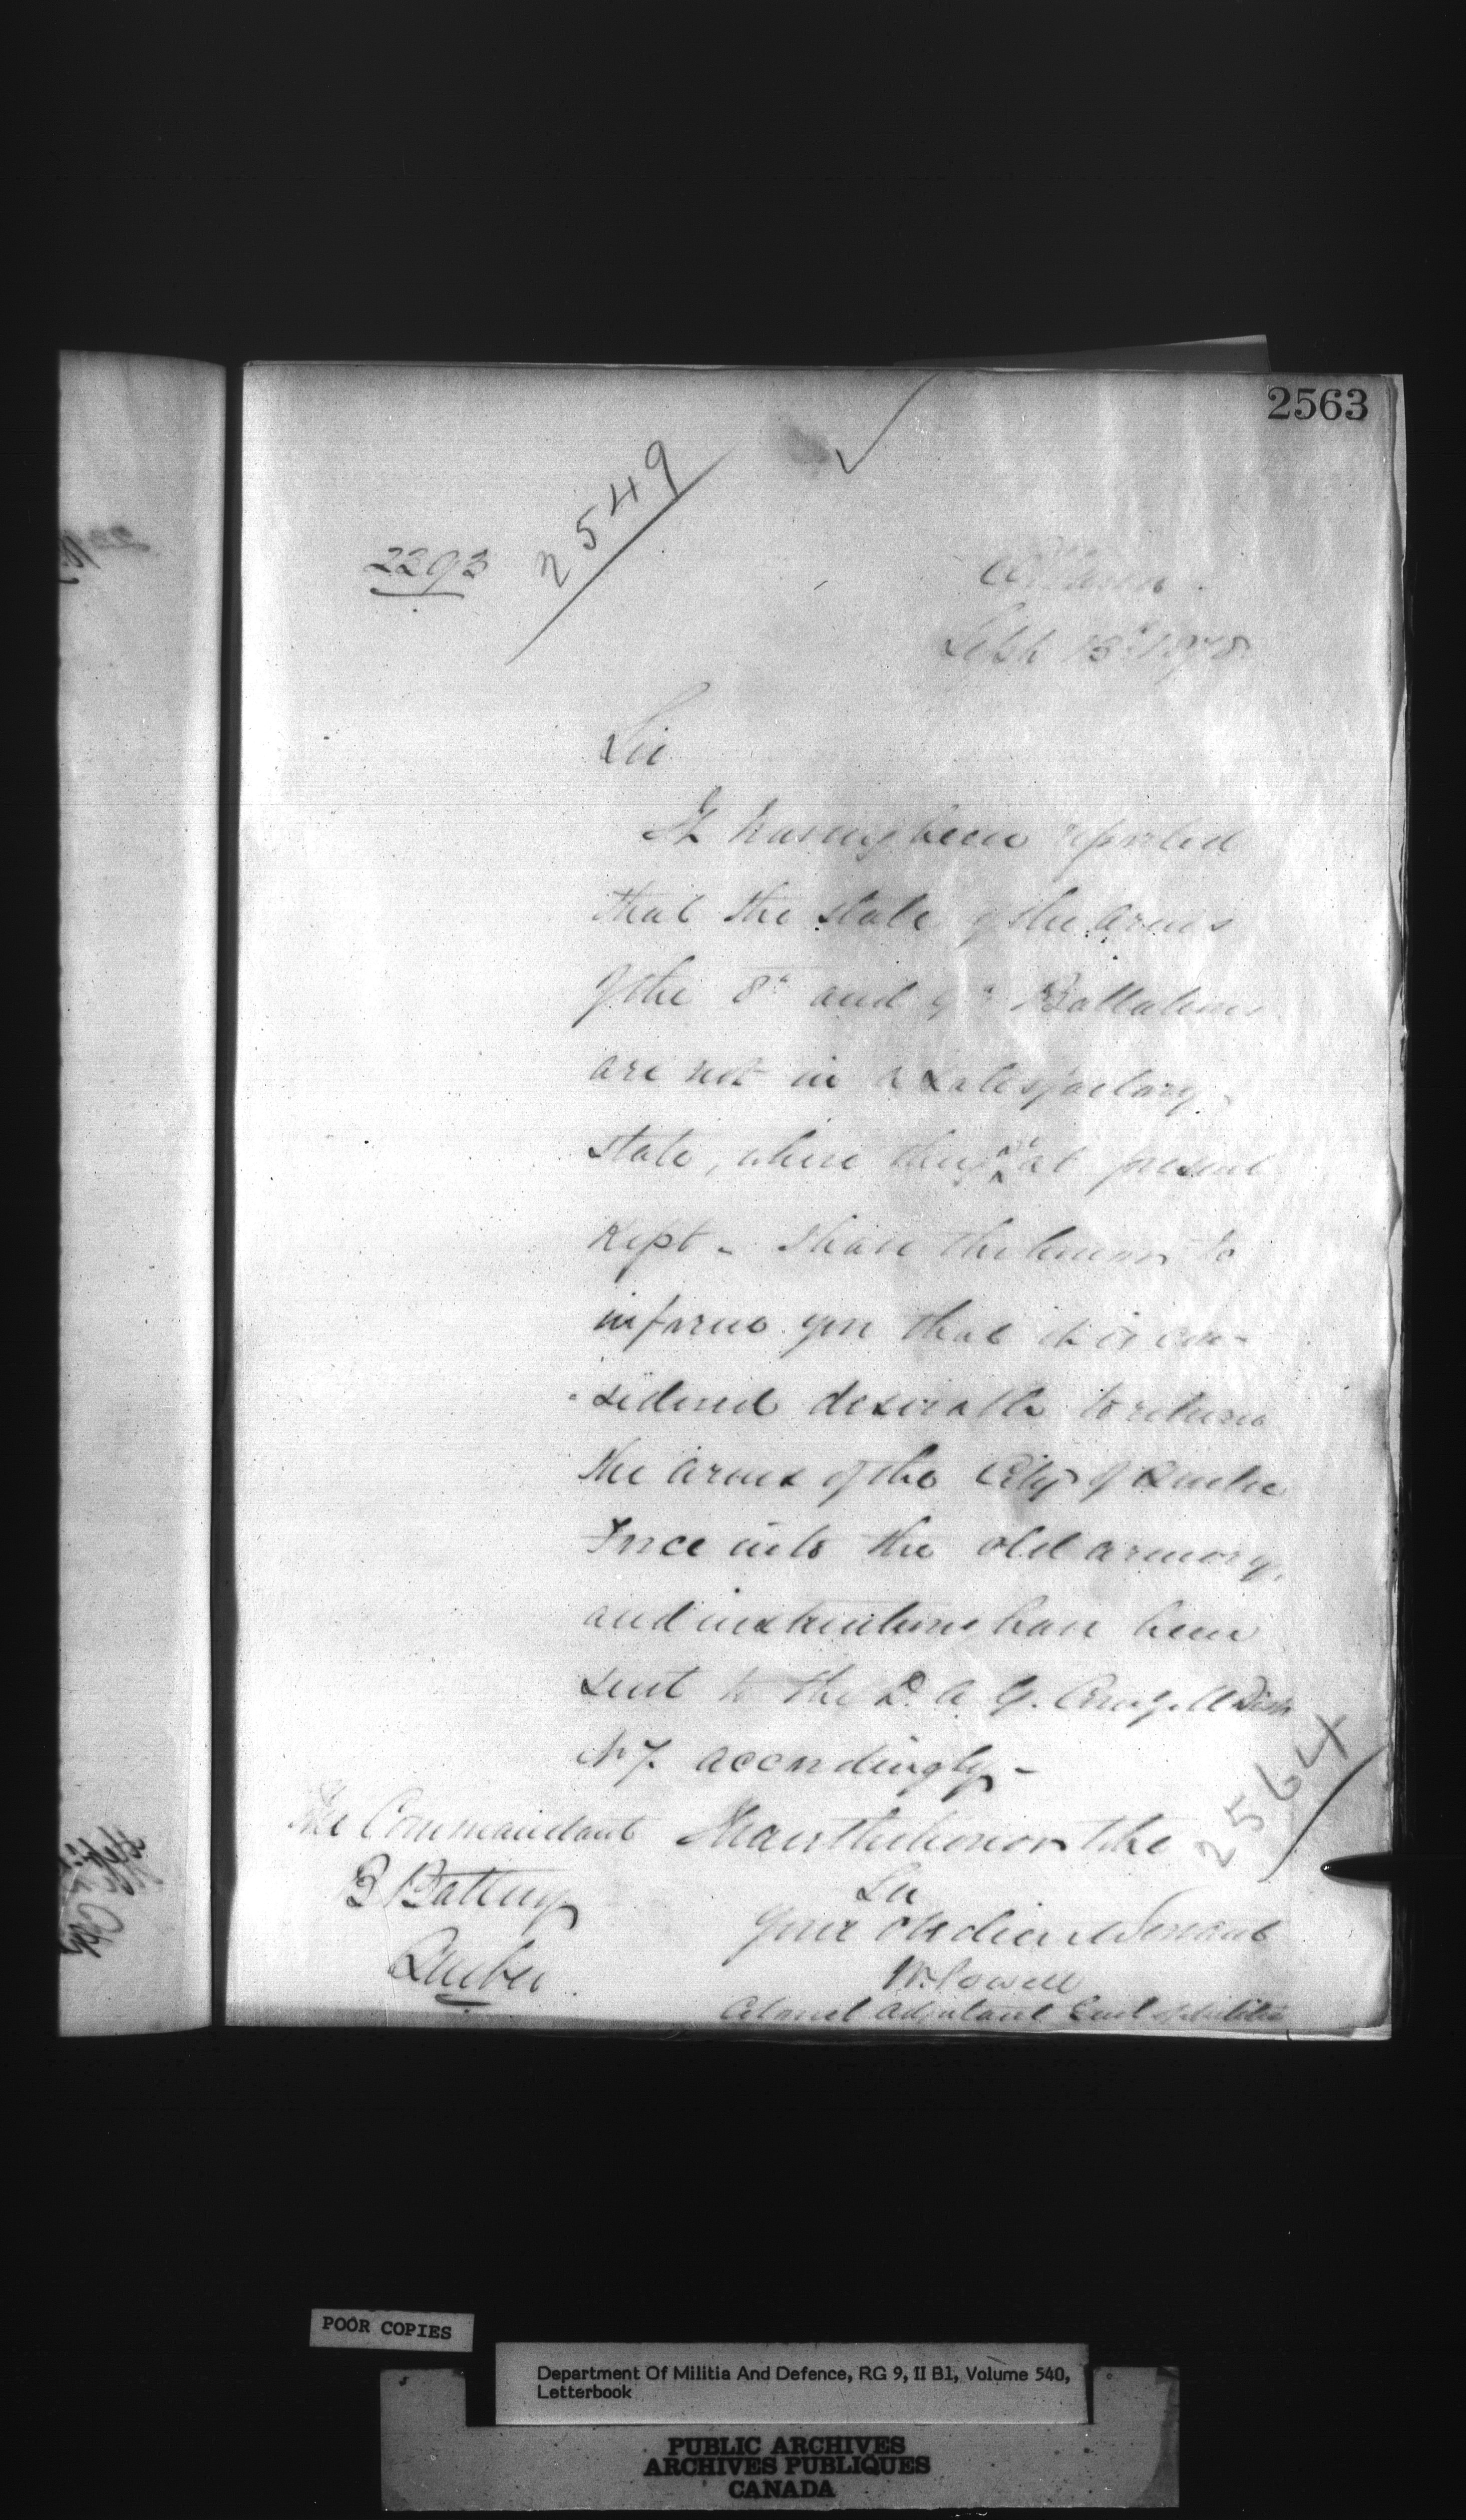 2563
2549
2293
Ottawa
Sept 13th 1878
Sir
It having been reported
that the state of the arms
of the 8th and 9th Battalions
are not in a satisfactory
state, where they are at present
kept - I have the honor to
inform you that it is con-
-sidered desirable to return
the arms of the City of Quebec
Force into the old armory,
and instructions have been
sent to the D. A. G. Comg. M Dist
No 7. accordingly -
I have the honor to be
Sir
Your Obedient Servant
W. Powell
Colonel Adjutant Genl of Militia
The Commandant
B Battery
Quebec
2564
POOR COPIES
Department Of Militia And Defence, RG 9, II B1, Volume 540,
Letterbook
PUBLIC ARCHIVES
ARCHIVES PUBLIQUES
CANADA